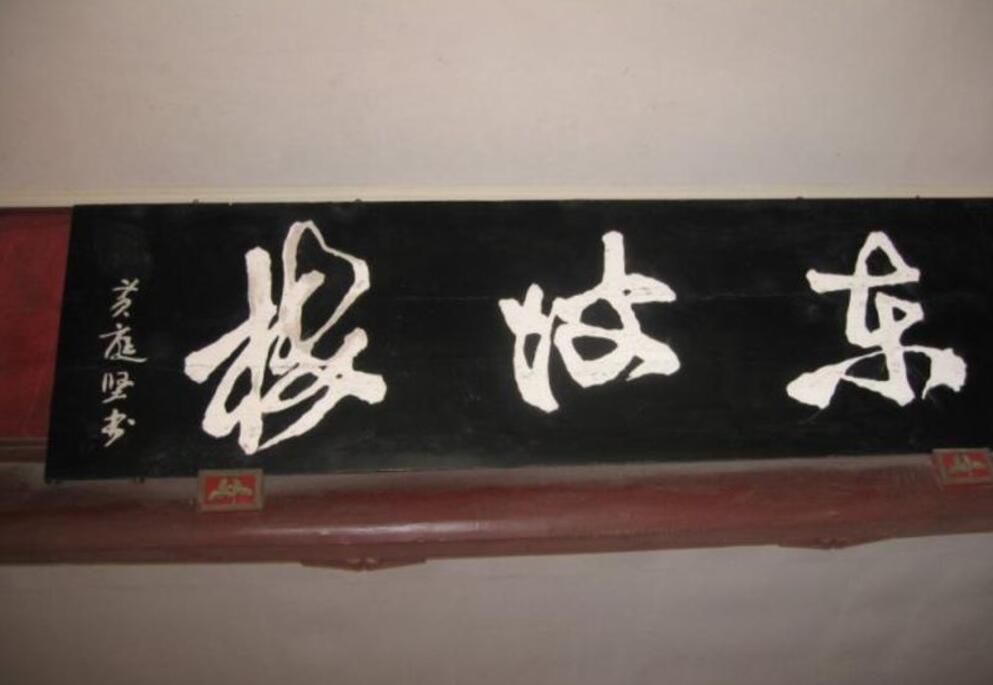 东坡楼
黄庭坚书